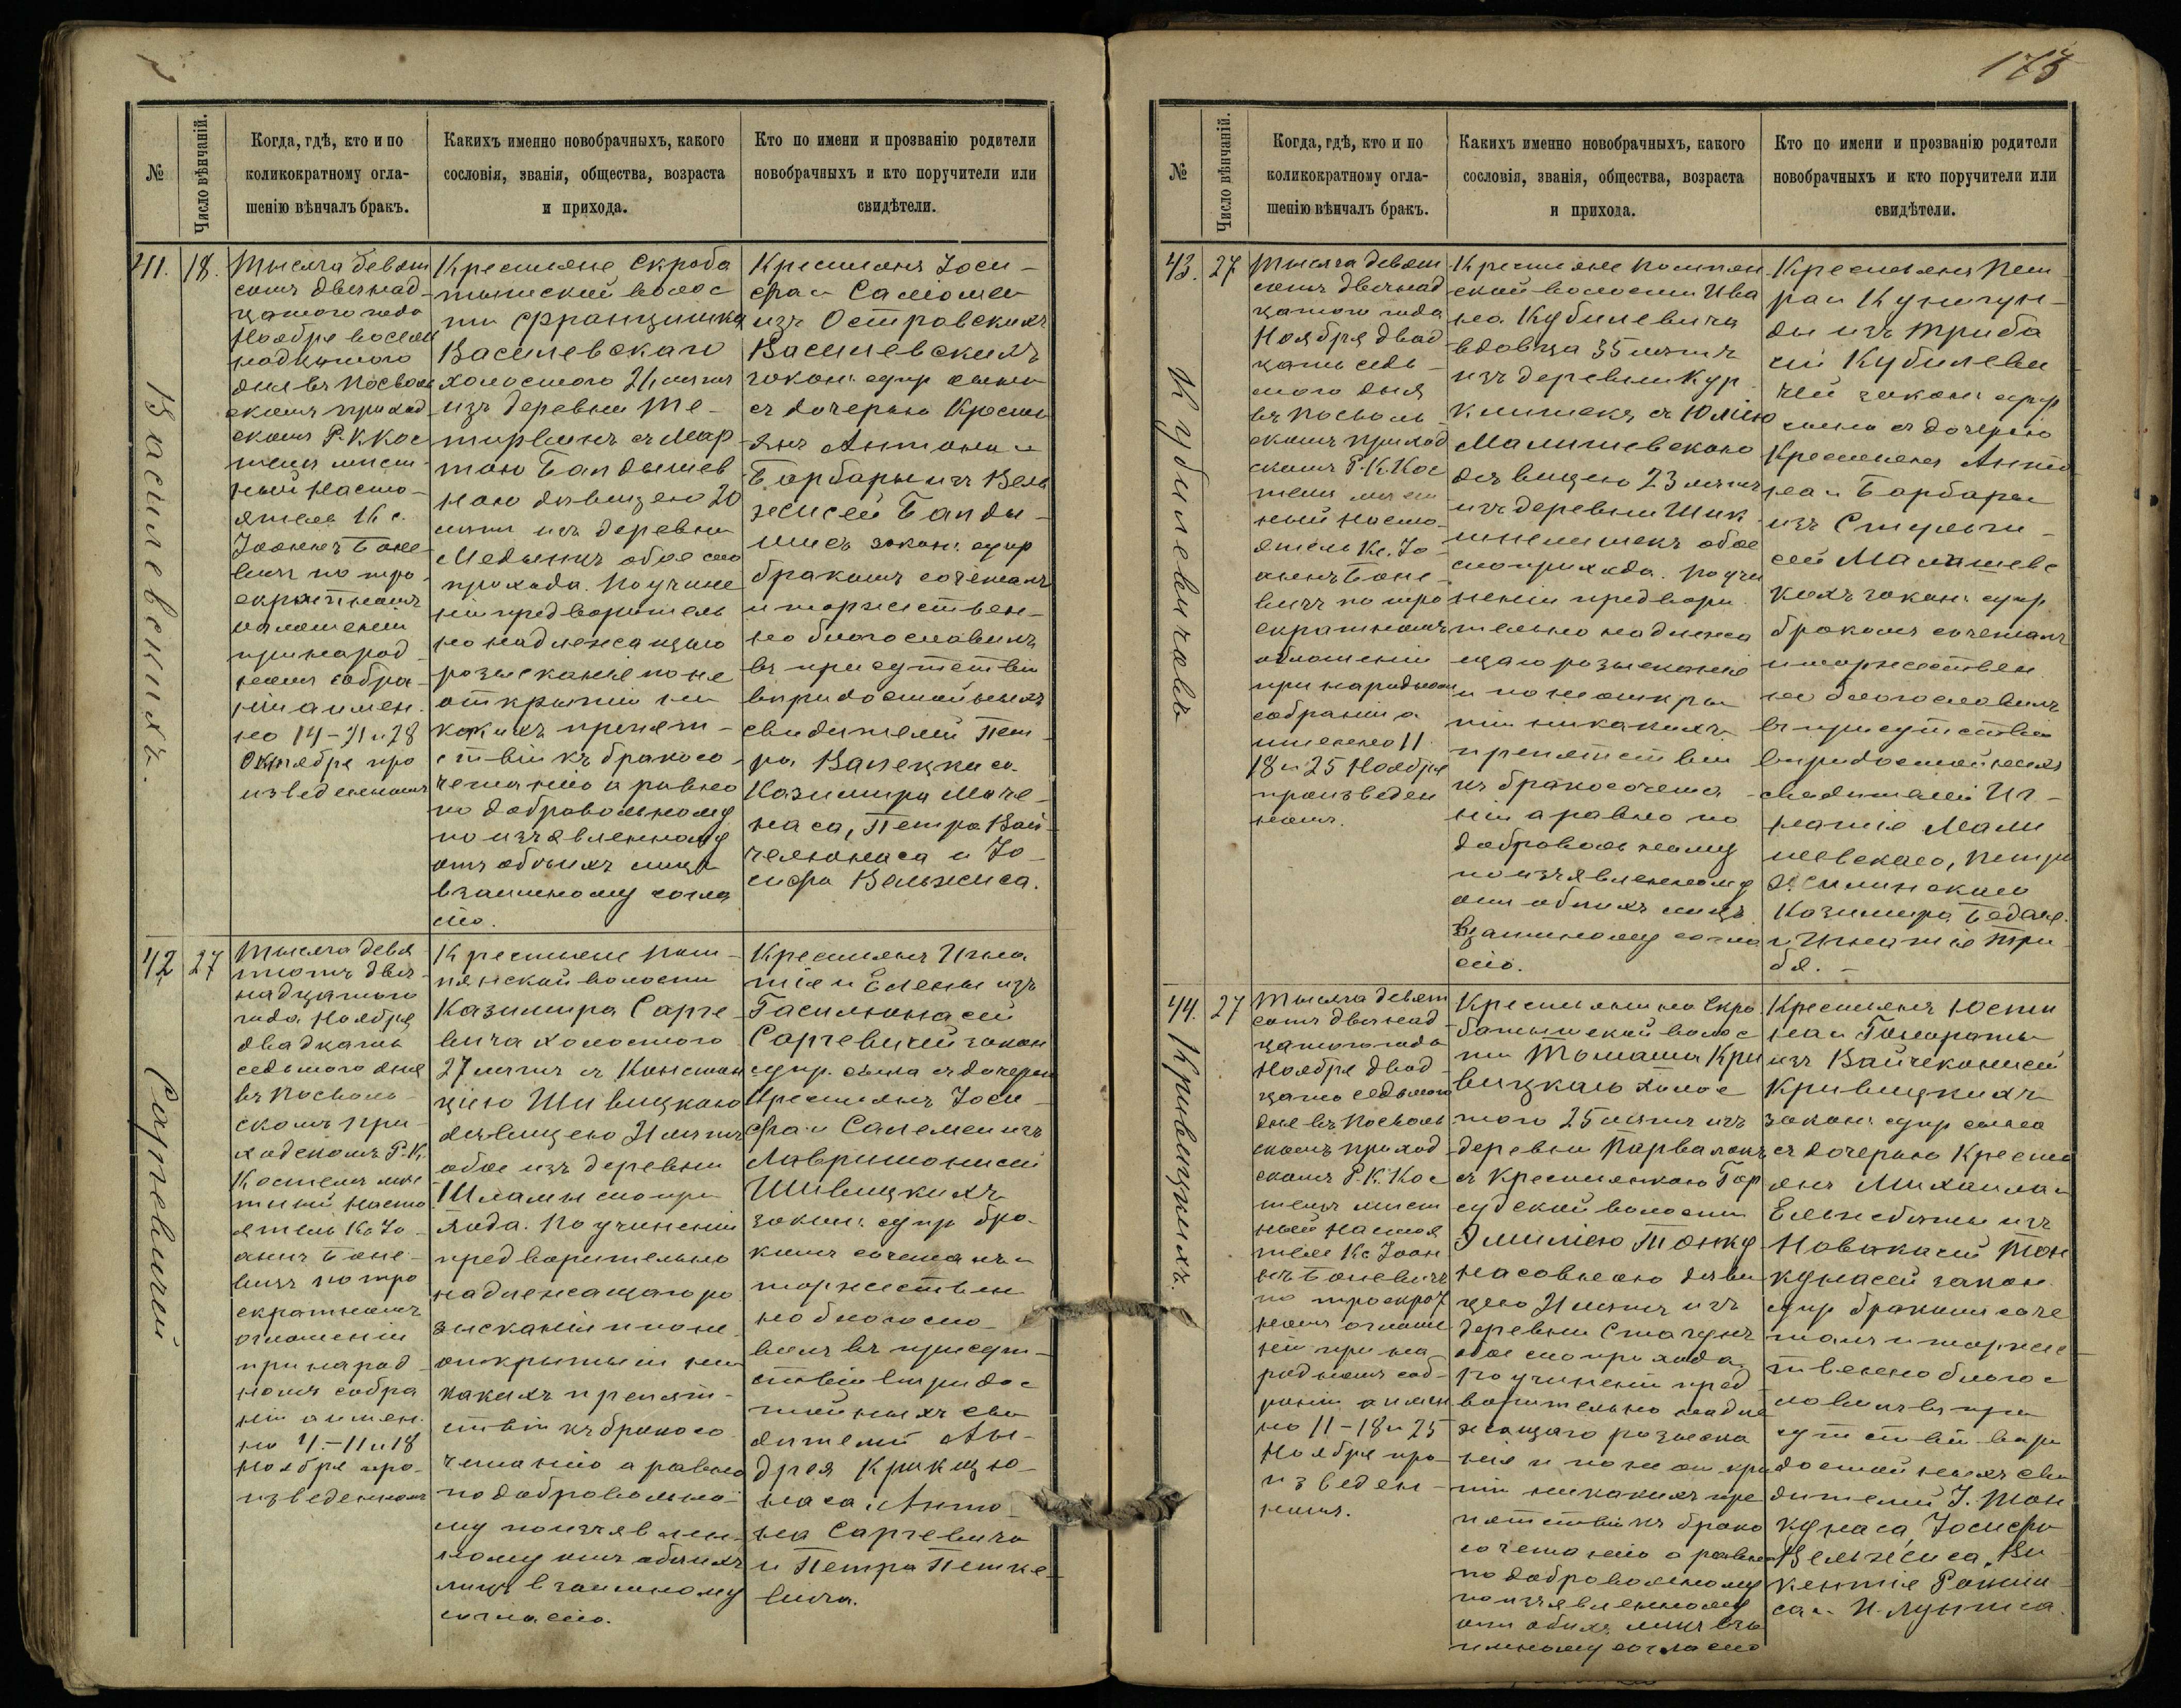 №
Число вѣнчаній.
Когда, гдѣ, кто и по
коликократному огла-
шенію вѣнчалъ бракъ.
Какихъ именно новобрачныхъ, какого
сословія, званія, общества, возраста
и прихода.
Кто по имени и прозванію родители
новобрачныхъ и кто поручители или
свидѣтели.
41.
18.
Василевскихъ.
Тысяча девят
сотъ двѣнад-
цатого года
Ноября восем
надцатого
дня въ Посволь
скомъ приход
скомъ Р. К Кос
телѣ мѣст
ный насто-
ятель Кс.
Іоаннъ Боне-
вичъ по тро-
екратномъ
оглашеніи
при народ-
номъ собра-
ніи а имен.
но 14-21 и 28
Октября про
изведенномъ
Крестьяне Скроба
тышской волос
ти Францишка
Василевскаго
холостого 21 лѣтъ
изъ деревни Те-
тирвинъ съ Мар
тою Бандышев
ною дѣвицею 20
лѣтъ изъ деревни
обое сего
прихода. По учине
ніи предваритель
но надлежащаго
розысканіе по не
открытіи ни
какихъ препят-
ствій къ бракосо-
четанію а равно
по добровольному
по изъявленному
отъ обоихъ лицъ
взаимному согла
сію.
Крестьянъ Іоси-
фа и Саломеи
изъ Островскихъ
Василевскихъ
закон: супр сына
съ дочерью Кресть
янъ Антона и
Барбары изъ Вель
жисей Банды-
шисъ закон: супр
бракомъ сочеталъ
и торжествен-
но благословилъ
въ присутствіи
вѣридостойныхъ
свидѣтелей Пет-
ра Валецкисо
Казимира Маче-
наса, Петра Вай-
челюнаса и Іо-
сифа Вельжиса.
42
27
Саргевичей
Тысяча девя
тсотъ двѣ-
надцатого
года Ноября
двадцать
седьмого дня
въ Посволь-
скомъ при-
ходскомъ Р. К.
Костелѣ мѣс
тный насто
ятель Кс Іо-
аннъ Боне-
вичъ по тро
екратномъ
оглашеніи
при народ-
номъ собра
ніи а имен.
но 4.-11 и 18
Ноября про-
изведенномъ
Крестьяне Помп-
янской волости
Казимира Сарге-
вича холостого
27 лѣтъ съ Констан
ціею Шивицкою
дѣвицею 21 лѣтъ
обое изъ деревни
Шламы сего при
хода. По учиненіи
предварительно
надлежащаго ро
зысканіи и по не
открытыи ни
какихъ препят-
ствій къ бракосо
четанію а равно
по добровольно-
му по изъявлен-
ному отъ обоихъ
лицъ взаимному
согласію.
Крестьянъ Игна
тія и Елены изъ
Гасилюнасей
Саргевичей закон
супр. сына съ дочерью
Крестьянъ Іоси-
фа и Саломеи изъ
Лавримонисей
Шивицкихъ
закон: супр бра-
комъ сочеталъ и
торжествен
но благосло-
вилъ въ присут-
ствіи вѣридос
тойныхъ сви
дѣтелей Ан-
дрея Крикщю-
наса Анто-
на Саргевича
и Петра Петке-
вича.
175
№
Число вѣнчаній.
Когда, гдѣ, кто и по
коликократному огла-
шенію вѣнчалъ бракъ.
Какихъ именно новобрачныхъ, какого
сословія, званія, общества, возраста
и прихода.
Кто по имени и прозванію родители
новобрачныхъ и кто поручители или
свидѣтели.
43.
27
Кубилевичовъ
Тысяча девят
сотъ двѣнад
цатого года
Ноября двад
цать седь-
мого дня
въ Посволь-
скомъ приход
скомъ Р. К. Кос
телѣ мѣст
ный насто-
ятель Кс. Іо-
аннъ Боне-
вичъ по тро
екратномъ
оглашеніи
при народномъ
собраніи а
именно 11
18 и 25 Ноября
произведен
номъ.
Крестьяне Помпян
ской волости Ива
на Кубилевича
вдовца 35 лѣтъ
изъ деревни Кур
клишекъ съ Юліею
Малишевскою
дѣвицею 23 лѣтъ
изъ деревни Шик
шнелишекъ обое
сего прихода. По учи
неніи предвари
тельно надлежа
щаго розысканіе
и по неоткры
тіи никакихъ
препятствій
къ бракосочета
нію а равно по
добровольному
по изъявленному
отъ обоихъ лицъ
взаимному согла
сію.
Крестьянъ Пет
ра и Кунигун-
ды изъ Триба
сй Кубилеви
чей закон: супр
сына съ дочерію
Крестьянъ Анто
на и Барбары
изъ Стульги-
сей Малишевс
кихъ закон: супр
бракомъ сочеталъ
и торжествен
но благословилъ
въ присутствіи
вѣридостойныхъ
свидѣтелей Иг-
натія Мали
шевскаго, Петра
Жилинскаго
Казимира Бедаля.
и Игнатія Три
бя. -
44.
27
Кривицкихъ.
Тысяча девят
сотъ двѣнад
цатого года
Ноября двад-
цать седьмого
дня въ Посволь
скомъ приход
скомъ Р. К. Кос
телѣ мѣст
ный настоя
тель Кс Іоан
нъ Боневичъ
по троекрат
номъ оглаше
ніи при на-
родномъ соб-
раніи а имен
но 11-18 и 25
Ноября про-
изведен-
номъ.
Крестьянина Скро
батышской волос
ти Томаша Кри
вицкаго холос
того 25 лѣтъ изъ
деревни Парвалокъ
съ Крестьянкою Гор
судской волости
Эмиліею Тонку
насовною дѣви
цею 21 лѣтъ изъ
деревни Стачунъ
обое сего прихода
По учиненіи пред
варительно надле
жащаго розыска
нія и по неоткры
тіи никакихъ пре
пятствій къ брако
сочетанію а равно
по добровольному
по изъявленному
отъ обоихъ лицъ вза
имному согласію
Крестьянъ Юсти
на и Гонораты
изъ Вайчеконисей
Кривицкихъ
закон: супр сына
съ дочерью Кресть
янъ Михаила и
Ельжбеты изъ
Новакасй Тон
кунасей закон.
супр бракомъ соче
талъ и торжес
твенно благос
ловилъ въ при
сутствіи вѣри
достойныхъ сви
дѣтелей І. Тон
кунаса, Іосифа
Вельжиса, Ви
кентія
са и И.